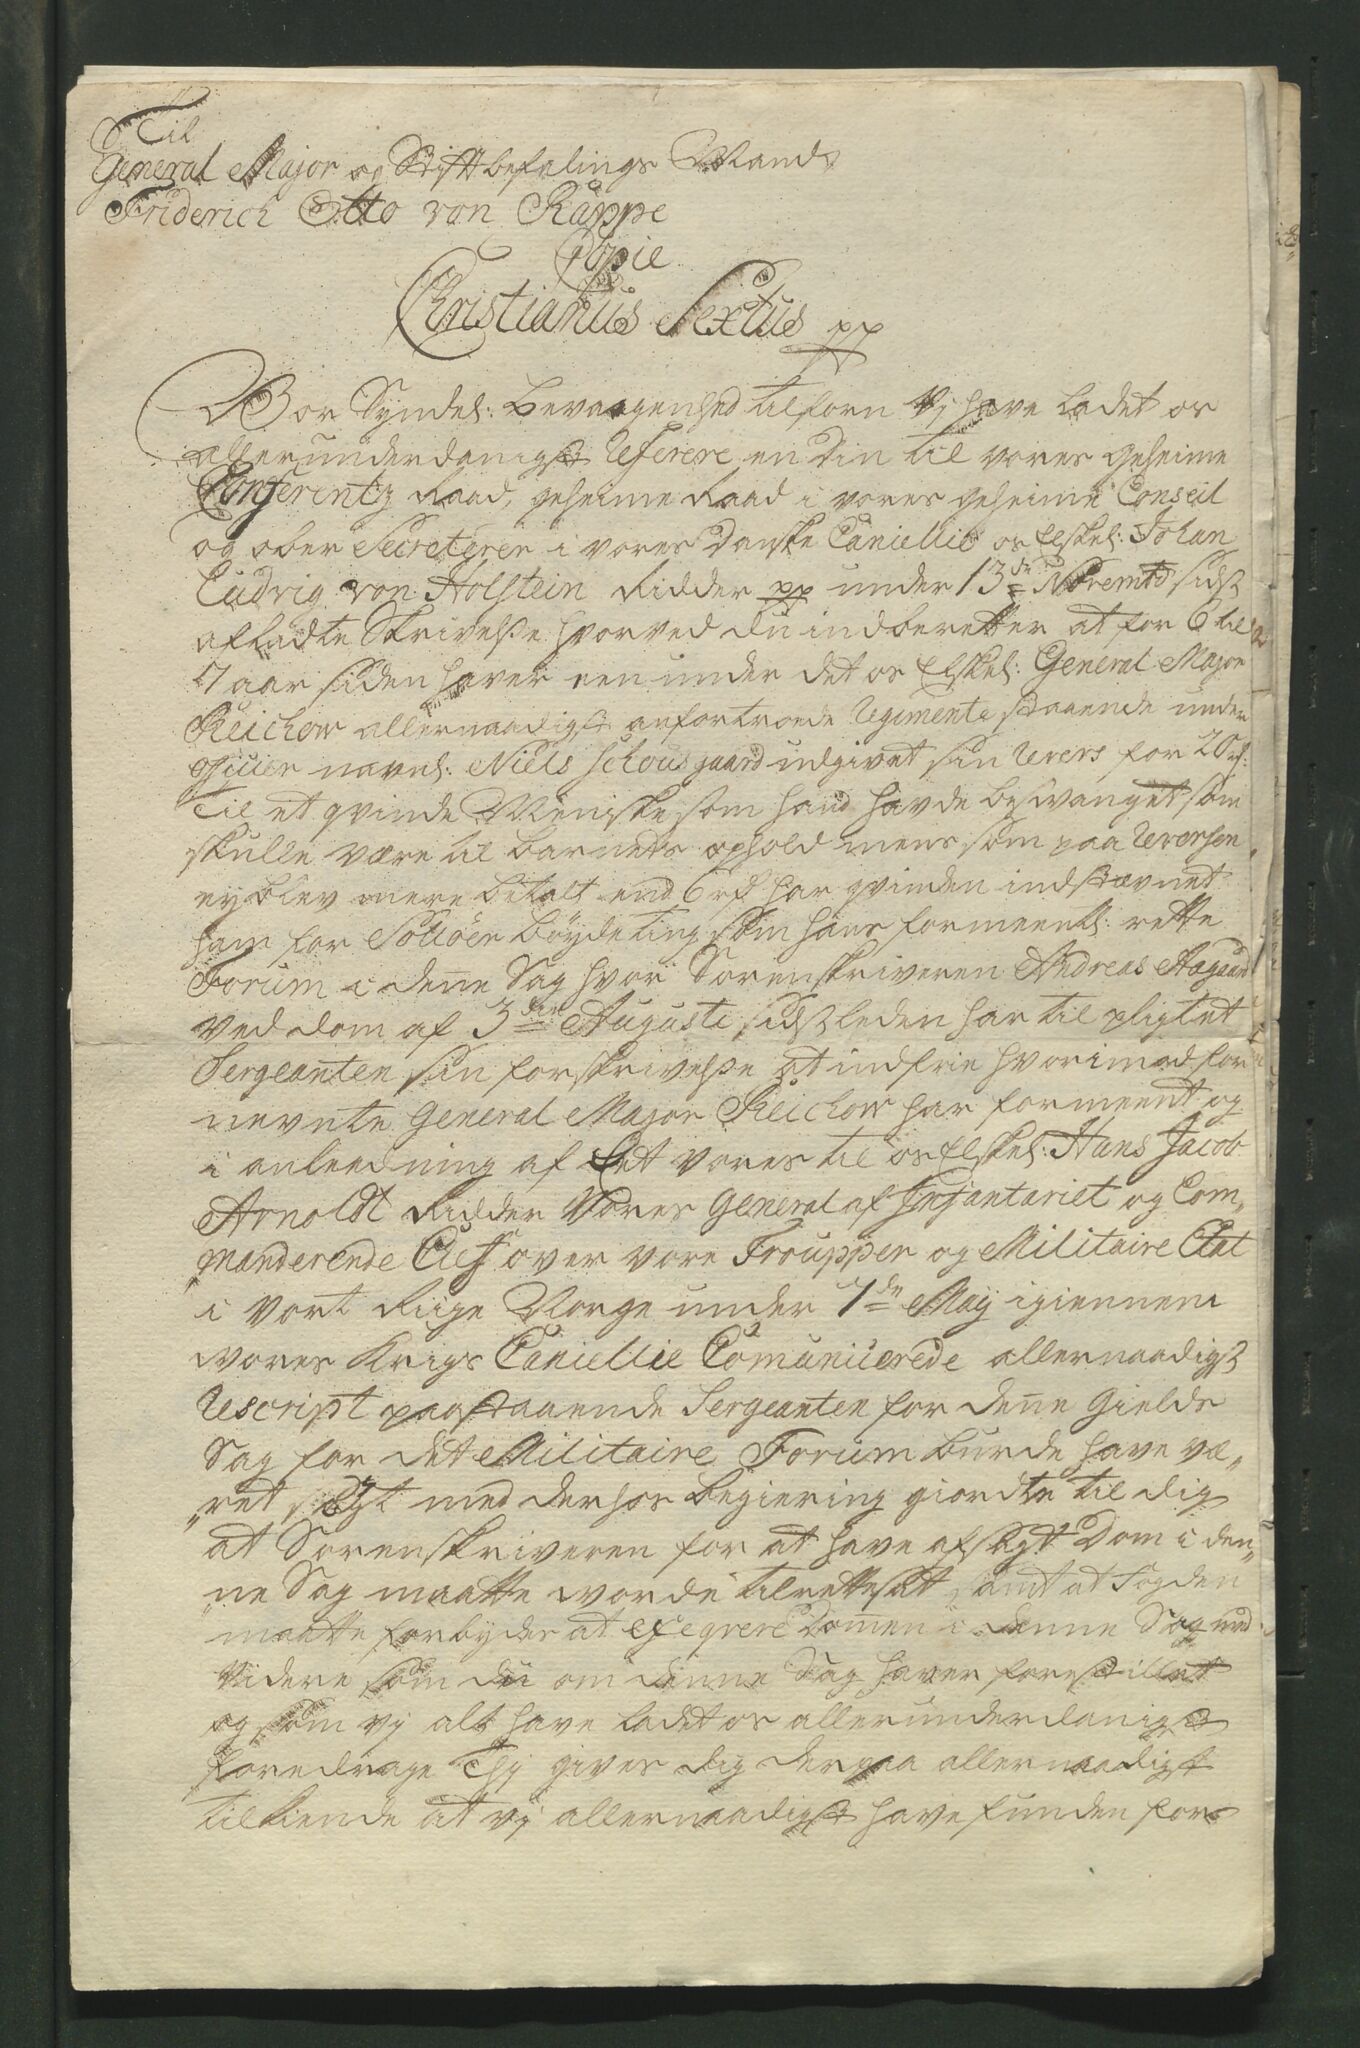 Til
General Major og Stiftbefalings Mand
Friderich Otto von Rappe
Copie
Christianus Sextus pp
Vor Syndel: Bevaagenhed tilforn Vj have ladet os
allerunderdanigst referere en din til vores geheime
Conferentz Raad, geheime Raad i vores geheime Conseil
og ober Secreterer i vores Danske Cancellie os Elskel: Johan
Ludvig von Holstein Ridder pp under 13de Novembr sidst
afladte Skrivelße hvorved du indberetter at for 6 til
7 aar siden haver een under det os Elskel: General Major
Reichow allernaadigst anfortroede Regimente staaende under
officier navnl: Niels Schousgaard udgivet sin Revers for 20 rd:
til et qvinde Meniske som hand havde besvanget som
skulle være til barnets ophold mens som paa Reversen
ey blev mere betalt end 6 rd har qvinden indstævnet
ham for Solöer böyde ting som hans formeentl: rette
Forum i denne Sag hvor Sorenskriveren Andreas Aagaard
ved dom af 3die Augusti sidstleden har til pligtet
Sergeanten sin forskrivelße at indfrie hvorimod for
nevnte General Major Reichow har formeent og
i anleedning af Et vores til os Elskel: Hans Jacob
Arnoldt Ridder Vores General af Infantariet og Com„
„manderende Chef over vore Troupper og Militaire Etat
i vort Rige Norge under 7de Maij igiennem
vores Krigs Cancellie Comunicerede allernaadigst
Rescript paastaaende Sergeanten for denne Gields
Sag for det Militaire Forum burde have væ„
„ret sögt med derhos begiering giordte til dig
at Sorenskriveren for at have afsagt Dom i den„
„ne Sag maatte vorde tilrettesat samt at Fogden
maatte forbydes at exeqvere Dommen i denne Sag med
Videre som du om denne Sag haver forestillet
og som vj alt have ladet os allerunderdanigst
foredrage Thj gives dig derpaa allernaadigst
tilkiende at vj allernaadigst have funden for„